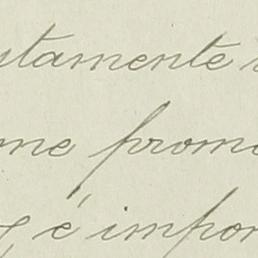 stamente
me prom
è impor